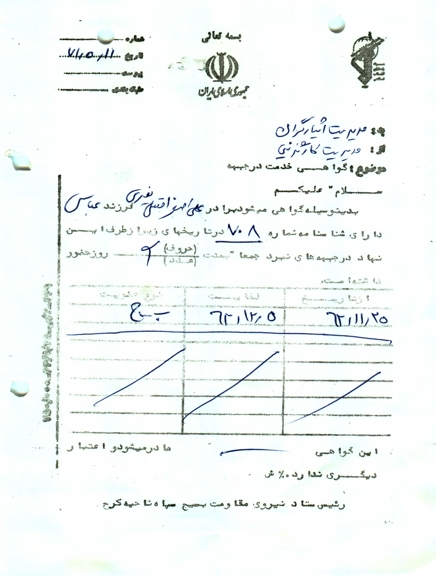 بسمه تعالی
شماره
تاریخ ۷۱،۵،۱۱
پیوست
طبقه بندی
جمهوری اسلامی ایران
به: مدیریت ایثارگران
از: مدیریت کارگزینی
موضوع: گواهی خدمت در جبهه
سلام" علیکم
بدینوسیله گواهی میشود برادر علی اصغر فرزند عباس
دارای شناسنامه شماره ۷۰۸ در تاریخهای زیر از طرف این
نهاد در جبهه های نبرد جمعا" بمدت (حروف) (عدد) روز حضور
داشته است.
از تاریخ لغایت نوع عضویت
۶۲،۱۱،۲۵ ۶۲،۱۲،۵ بسیج
این گواهی صادر میشود و اعتبار
دیگری ندارد.٪ ش
رئیس ستاد نیروی مقاومت بسیج سپاه ناحیه کرج